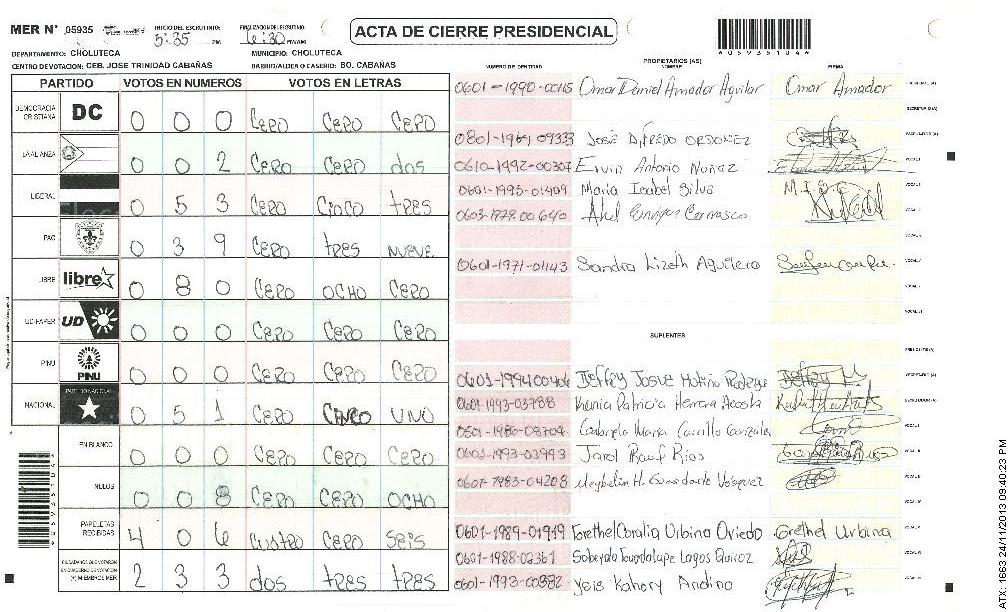 MER N° 05935 INICIO DEL ESCRUTINIO: 5:35 PM FINALIZACION ESCRUTINIO: 6:30 PM/AM ACTA DE CIERRE PRESIDENCIAL
*05935104*
DEPARTAMENTO: CHOLUTECA MUNICIPIO: CHOLUTECA
CENTRO DE VOTACION: CEB. JOSE TRINIDAD CABAÑAS BARRIO/ALDEA O CASERIO: BO. CABAÑAS
PARTIDO VOTOS EN NUMEROS VOTOS EN LETRAS
DEMOCRACIA CRISTIANA DC 0 0 0 CERO CERO CERO
LA ALIANZA 0 0 2 CERO CERO dos
LIBERAL 0 5 3 CERO CINCO tRES
PAC 0 3 9 CERO tRES NUEVE
LIBRE libre 0 8 0 CERO OCHO CERO
UD-FAPER UD 0 0 0 CERO CERO CERO
PINU PINU 0 0 0 CERO CERO CERO
NACIONAL PARTIDO NACIONAL 0 5 1 CERO CINCO UNO
EN BLANCO 0 0 0 CERO CERO CERO
NULOS 0 0 8 CERO CERO OCHO
PAPELETAS RECIBIDAS 4 0 6 CUATRO CERO SEIS
CIUDADANOS QUE VOTARON EN CUADERNO DE VOTACION (+) MIEMBROS MER 2 3 3 dos tRES tRES
PROPIETARIOS (AS)
NUMERO DE IDENTIDAD NOMBRE FIRMA
0601-1990-00115 Omar Daniel Amador Aguilar Omar Amador PRESIDENTE (A)
SECRETARIO (A)
0801-1969-09333 JOSÉ ALFREDO ORDOÑEZ ESCRUTADOR (A)
0610-1992-00307 Ervin Antonio Nuñaz VOCAL I
0601-1993-01409 Maria Isabel Silva
0603-1979-00640 Abel Enrique Carrasco
0601-1971-01143 Sandra Lizeth Aguilera
SUPLENTES
PRESIDENTE (A)
0601-1994 00406 Jeffry Josue Molina Jeffry M. SECRETARIO (A)
0601-1993-03788 Kenia Patricia Herrera Acosta ESCRUTADOR (A)
0501-1986-08704 Gabriela Maria Carrillo Gonzalez
0601-1993-03993 Jarol Rauf Rios
0607-1983-04208
0601-1989-01919 Grethel Coralia Urbina Oviedo Grethel Urbina
0601-1988-02361 Lagos Quiroz
0601-1993-00382 Kahory Andino
ATX: 1663 24/11/2013 09:40:23 PM